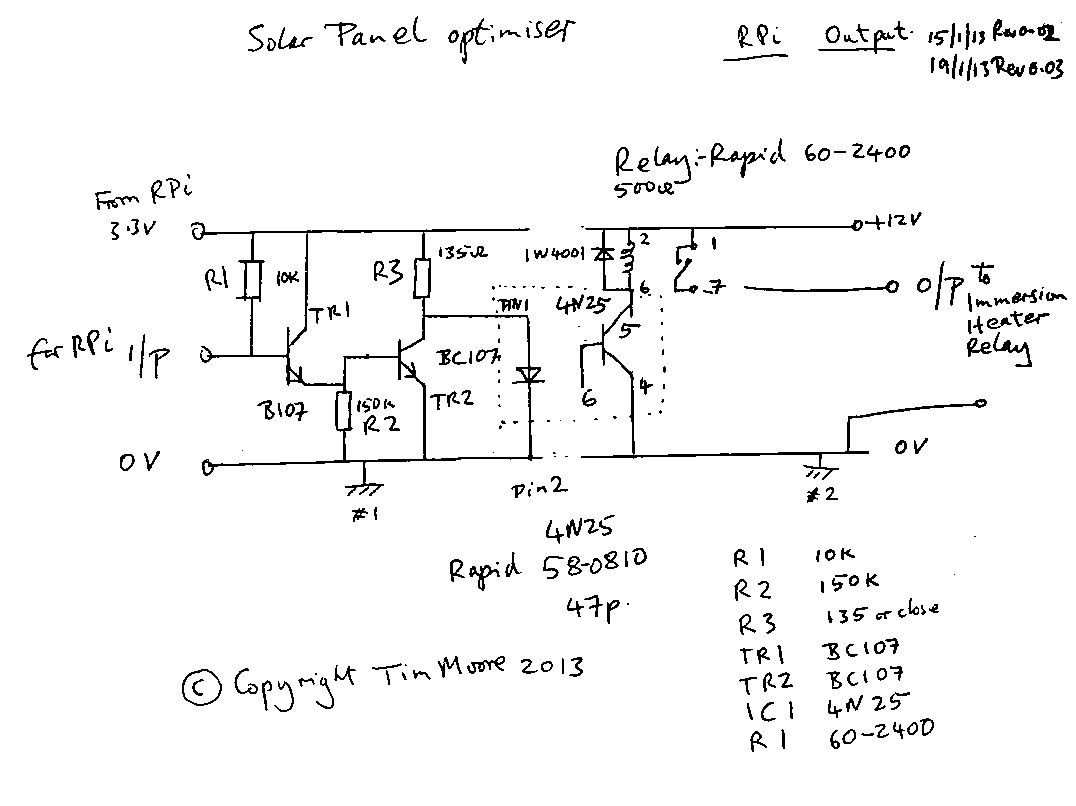 Solar Panel optimiser
RPi Output 15/1/13 Rev 0.02
19/1/13 Rev 0.03
Relay:-Rapid 60-2400
500Ω
From RPi
3.3V
+12V
R1 10K
R3 135Ω
1N4001
2
1
6
7
O/P to
Immersion
Heater
Relay
PIN1
4N25
5
TR1
for RPi I/P
BC107
TR2
B107
150K
R2
6
4
0V
0V
#1
Pin2
#2
4N25
Rapid 58-0810
47p.
R1 10K
R2 150K
R3 135 or close
TR1 BC107
TR2 BC107
IC1 4N25
R1 60-2400
© Copyright Tim Moore 2013